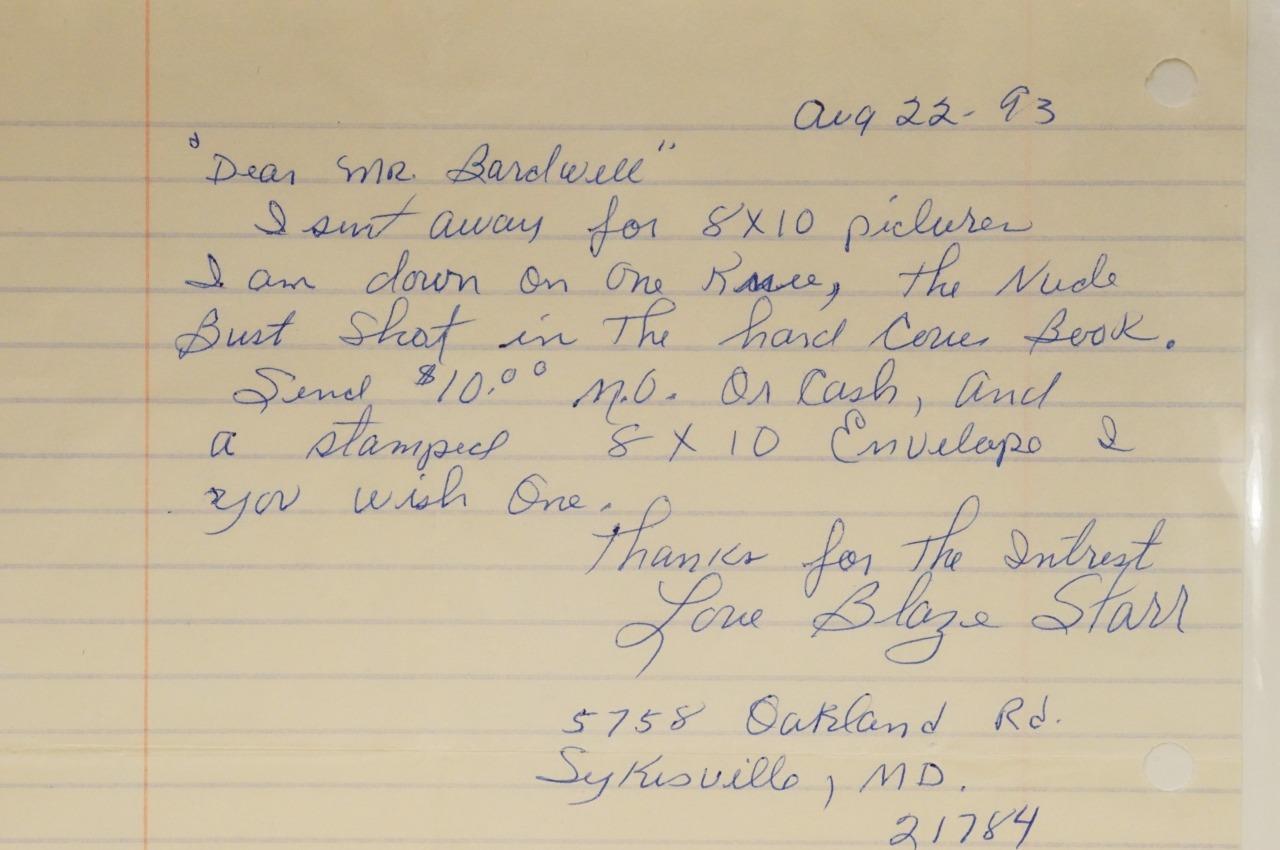 Aug 22-93
"Dear MR. Bardwell"
I sent away for 8X10 pictures
I am down on One Knee, the Nude
Bust Shot in The hard Cover Book.
Send $10.00 M.O. Or Cash, and
a stamped 8 X 10 Envelope I
you wish One.
Thanks for The Intrest
Love Blaze Starr
5758 Oakland Rd.
Sykesville, MD.
21784